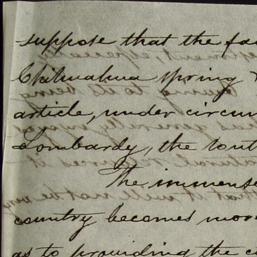 suppose that the fa
Chihuahua spring
article, under circum
Lombardy, the
The immense
country becomes more
as to providing the c